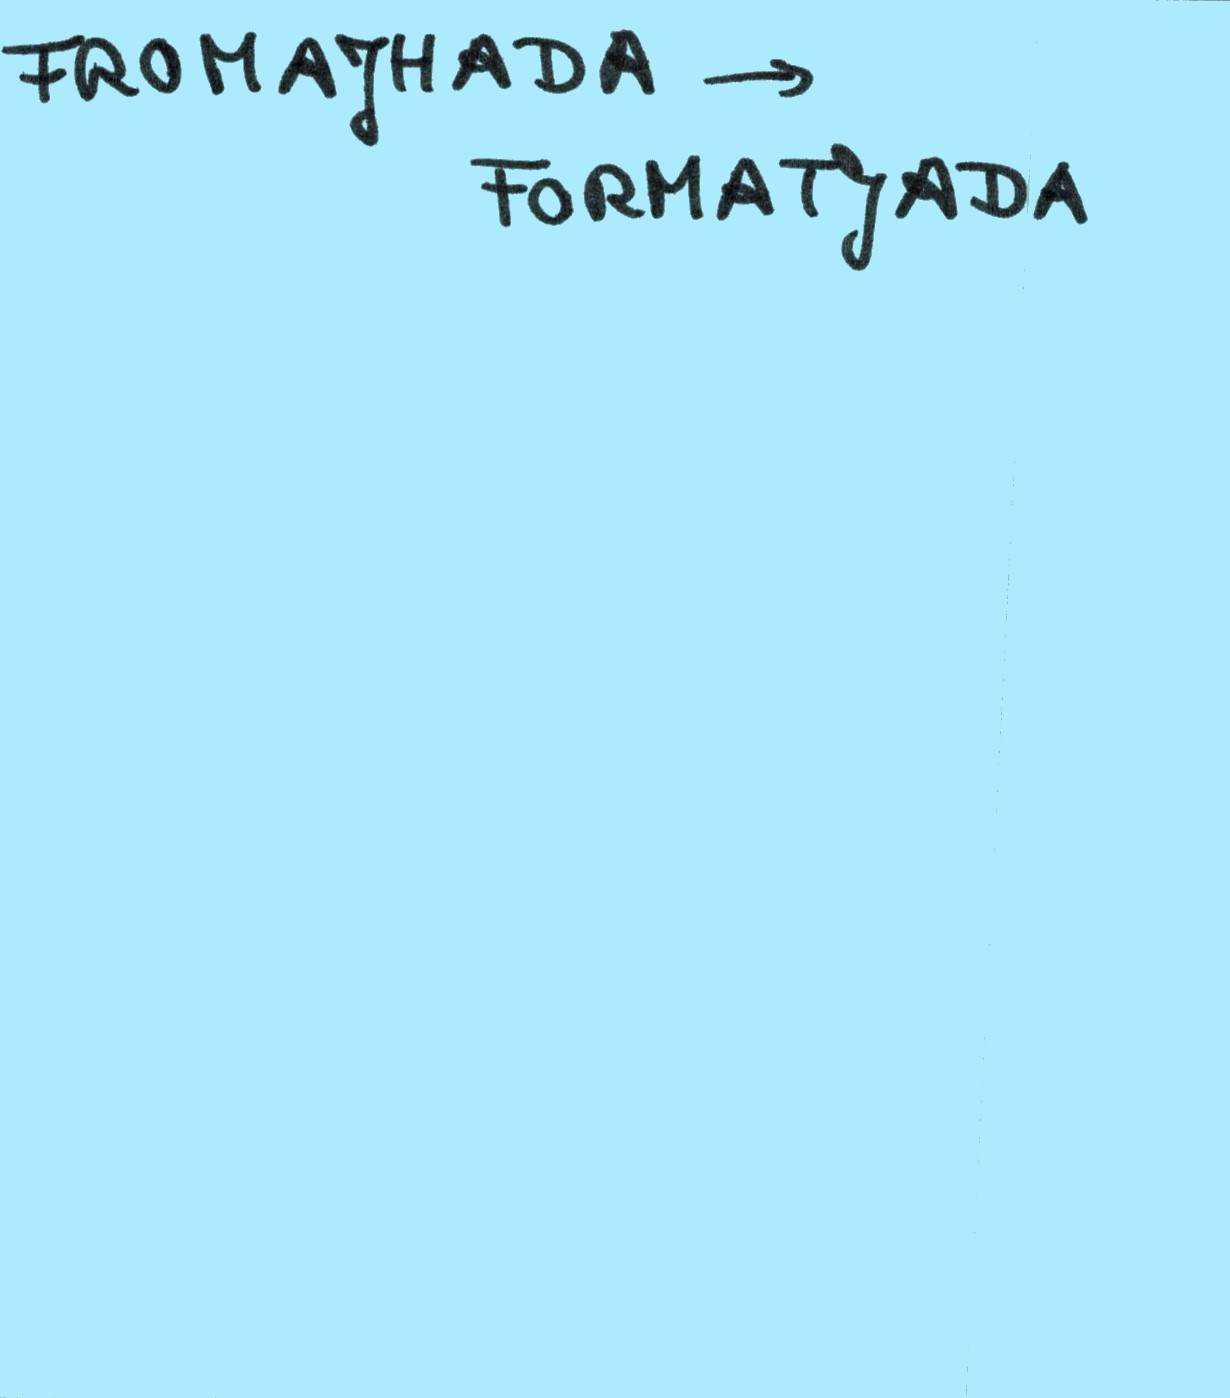 FROMAJHADA →
FORMATJADA